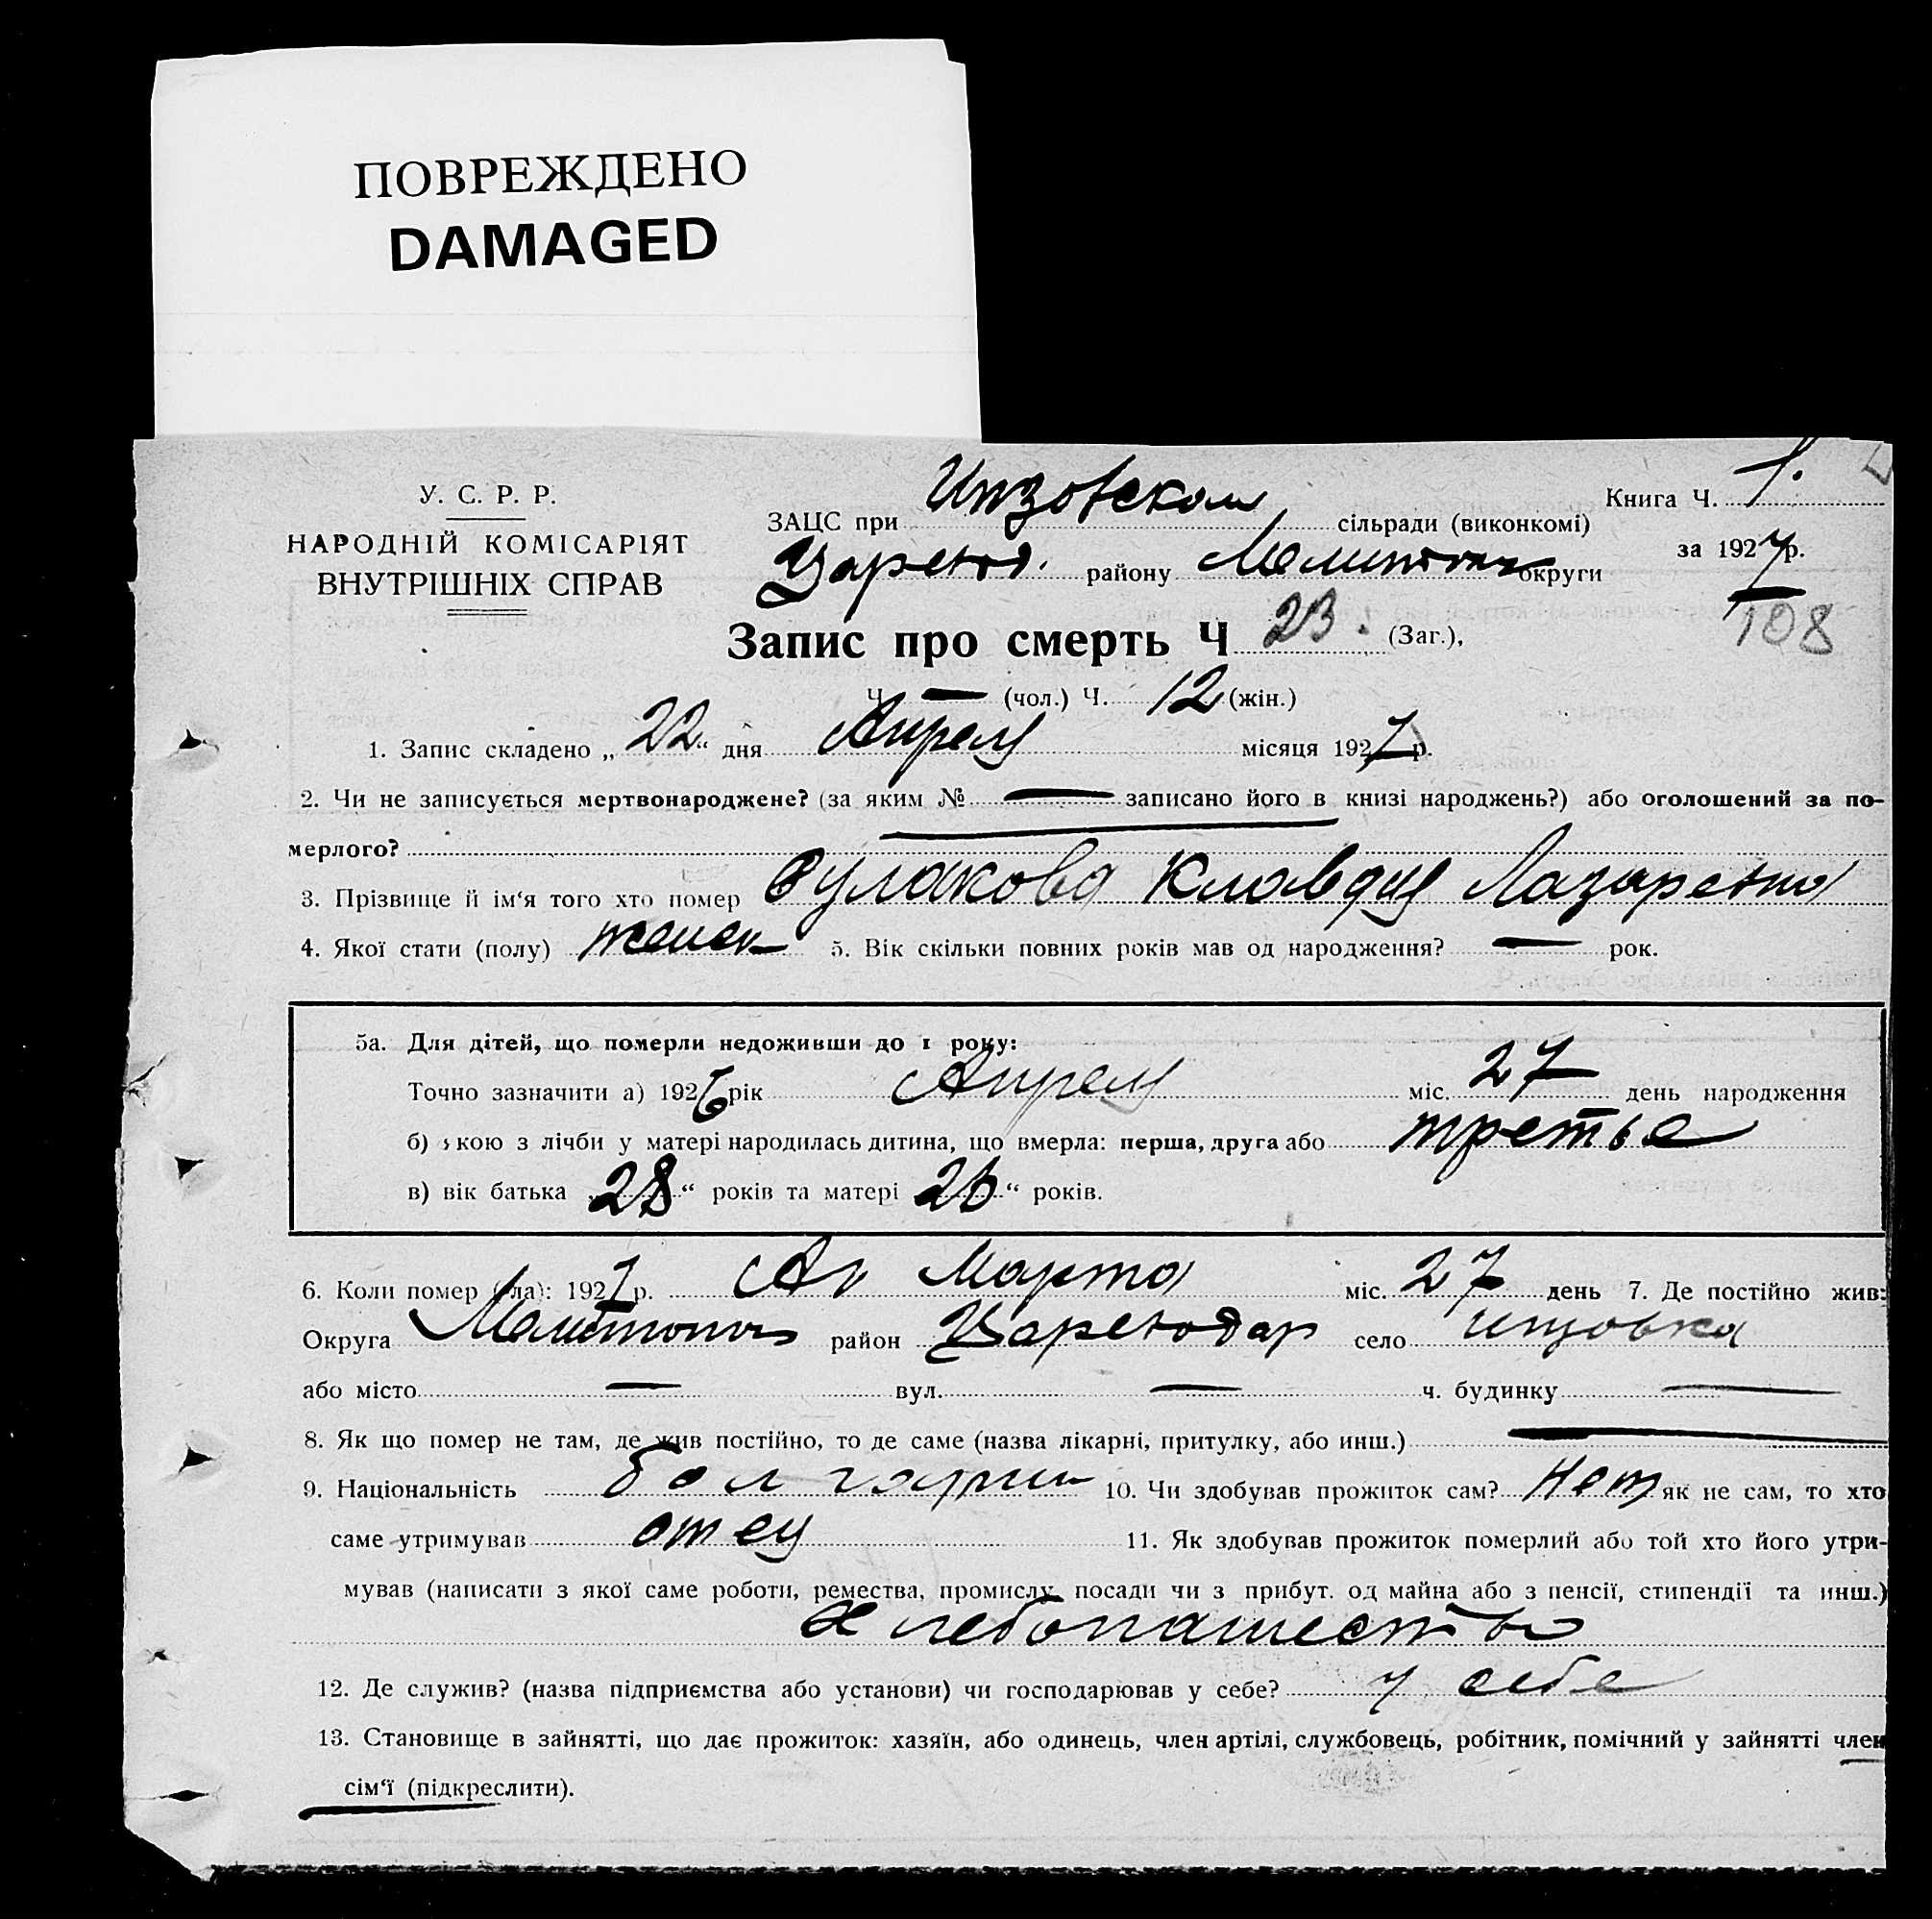 ПОВРЕЖДЕНО
DAMAGED
У. С. Р. Р.
НАРОДНІЙ КОМІСАРІЯТ
ВНУТРІШНІХ СПРАВ
ЗАЦС при Инзовском сільради (виконкомі)
Царевод. району Мелитоп округи
Книга Ч. 1.
за 1927 р.
108
Запис про смерть Ч 23. (Заг.),
Ч. — (чол.) Ч. 12 (жін.)
1. Запис складено „22“ дня Апреля місяця 1927 р.
2. Чи не записується мертвонароджене? (за яким № — записано його в книзі народжень?) або оголошений за по-
мерлого?
3. Прізвище й ім‘я того хто помер Клавдия Лазаревна
4. Якої стати (полу) женск 5. Вік скільки повних років мав од народження? — рок.
5а. Для дітей, що померли недоживши до 1 року:
Точно зазначити а) 1926 рік Апреля міс. 27 день народження
б) якою з лічби у матері народилась дитина, що вмерла: перша, друга або третье
в) вік батька „28“ років та матері „26“ років.
6. Коли помер (ла): 1927 р. Марта міс. 27 день 7. Де постійно жив:
Округа Мелитополь район Цареводар село Инзовка
або місто — вул. — ч. будинку —
8. Як що помер не там, де жив постійно, то де саме (назва лікарні, притулку, або инш.) —
9. Національність болгарин 10. Чи здобував прожиток сам? Нет як не сам, то хто
саме утримував отец 11. Як здобував прожиток померлий або той хто його утри-
мував (написати з якої саме роботи, ремества, промислу, посади чи з прибут. од майна або з пенсії, стипендії та инш.)
хлебопашество
12. Де служив? (назва підприємства або установи) чи господарював у себе? у себе
13. Становище в зайнятті, що дає прожиток: хазяїн, або одинець, член артілі, службовець, робітник, помічний у зайнятті член
сім‘ї (підкреслити).